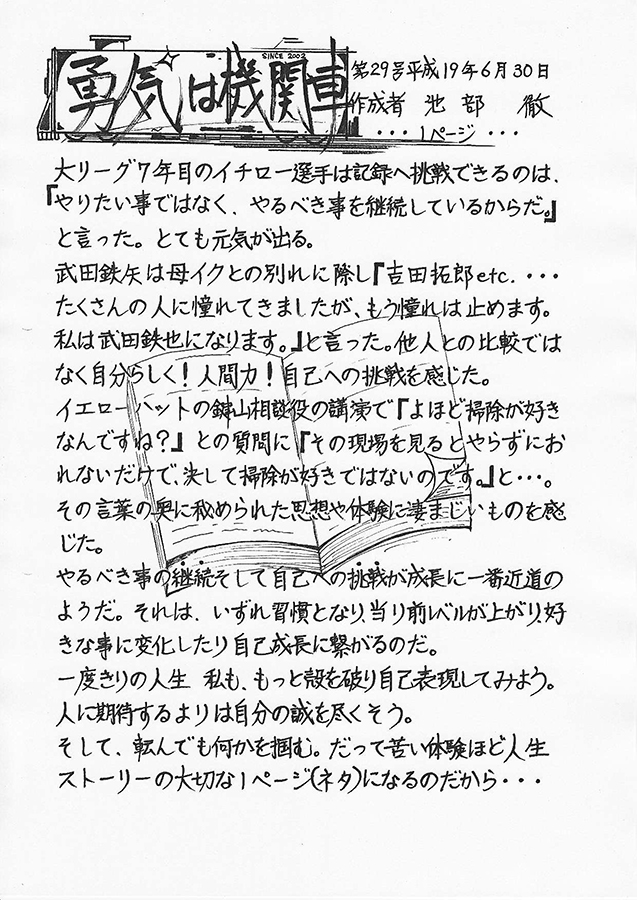 SINCE 2002
勇気は機関車
第29号平成19年6月30日
作成者 池部 徹
・・・1ページ・・・
大リーグ7年目のイチロー選手は記録へ挑戦できるのは、
『やりたい事ではなく、やるべき事を継続しているからだ。』
と言った。とても元気が出る。
武田鉄矢は母イクとの別れに際し『吉田拓郎etc.・・・
たくさんの人に憧れてきましたが、もう憧れは止めます。
私は武田鉄也になります。』と言った。他人との比較では
なく自分らしく!人間力!自己への挑戦を感じた。
イエローハットの鍵山相談役の講演で『よほど掃除が好き
なんですね?』との質問に『その現場を見るとやらずにお
れないだけで、決して掃除が好きではないのです。』と・・・。
その言葉の奥に秘められた思想や体験に凄まじいものを感
じた。
やるべき事の継続そして自己への挑戦が成長に一番近道の
ようだ。それは、いずれ習慣となり、当り前レベルが上がり、好
きな事に変化したり自己成長に繋がるのだ。
一度きりの人生 私も、もっと殻を破り自己表現してみよう。
人に期待するよりは自分の誠を尽くそう。
そして、転んでも何かを掴む。だって苦い体験ほど人生
ストーリーの大切な1ページ(ネタ)になるのだから・・・